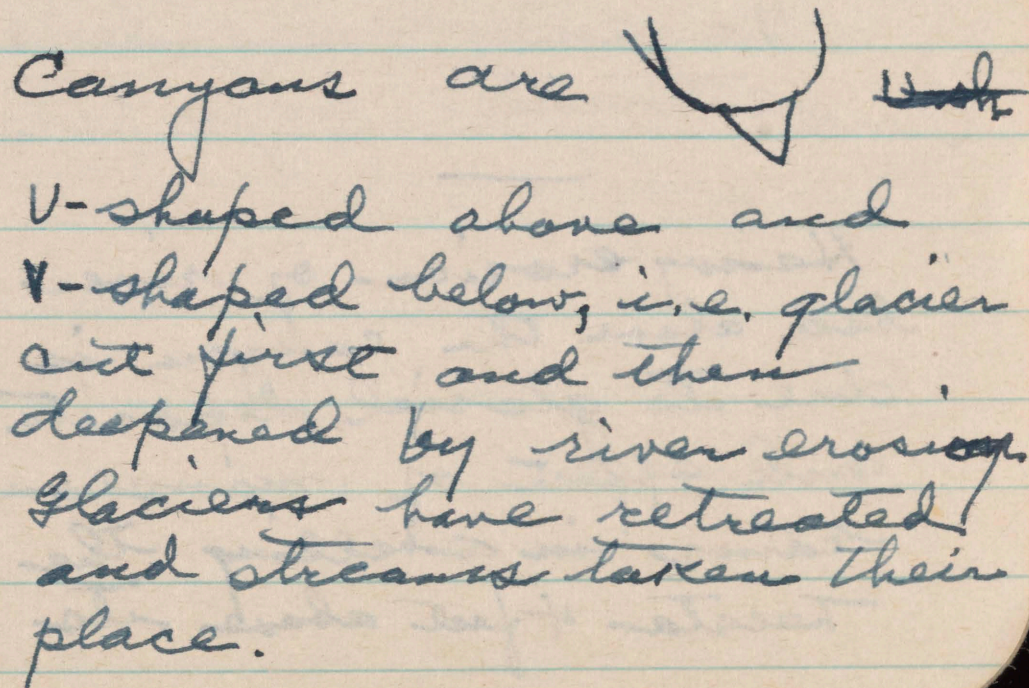 Canyons are
U-shaped above and
V-shaped below, i.e. glacier
cut first and then
deepened by river erosion.
Glaciers have retreated
and streams taken their
place.